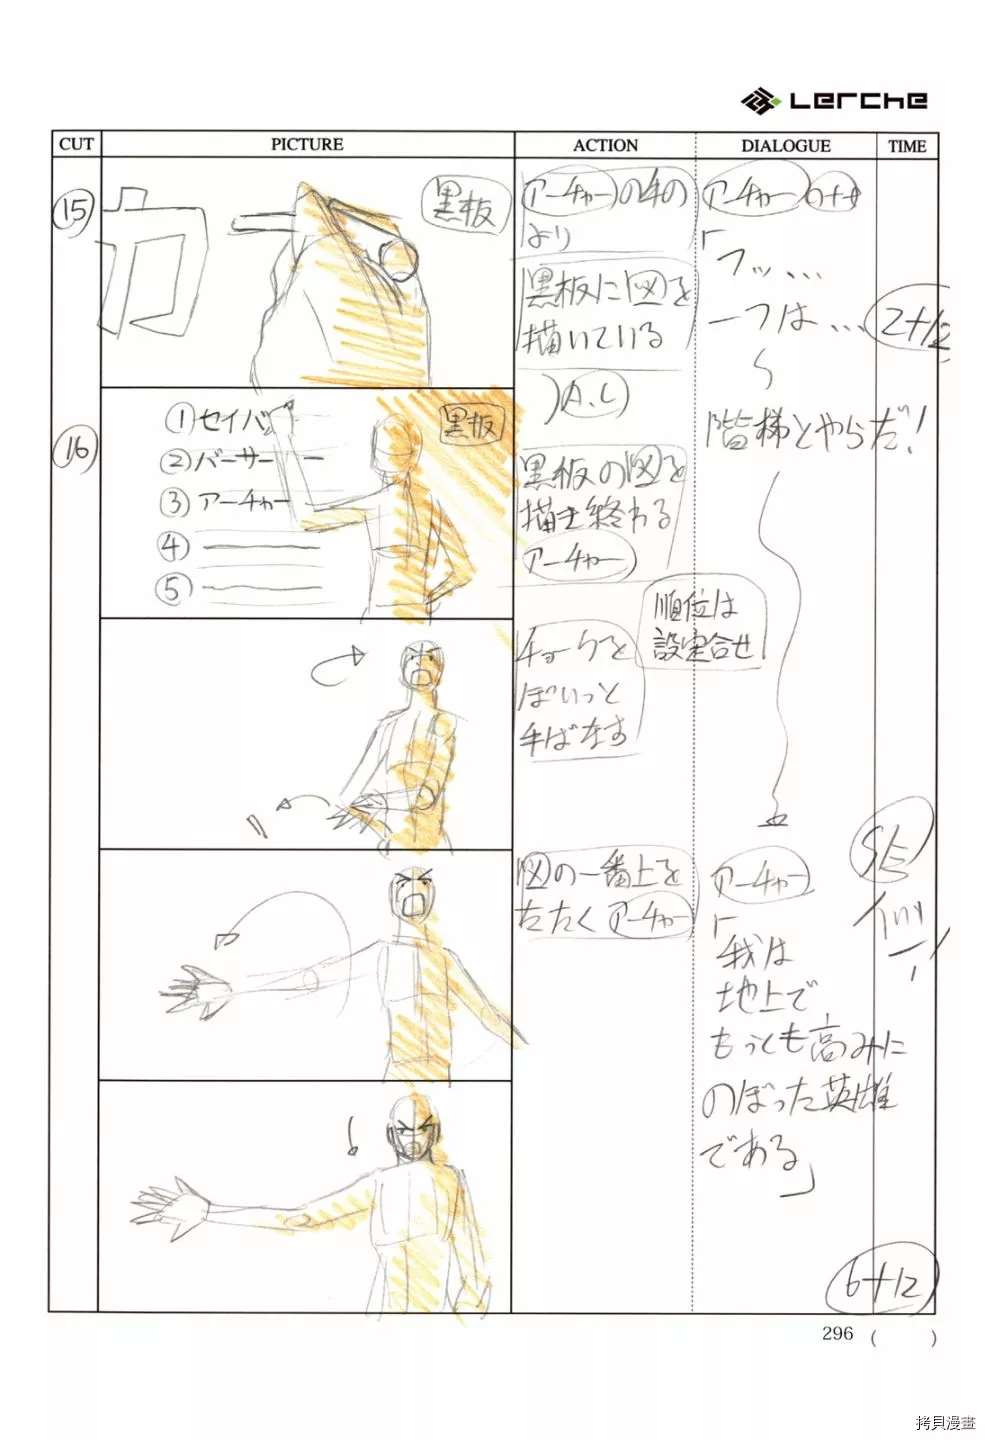 Lerche
CUT
PICTURE
ACTION
DIALOGUE
TIME
15
黒板
アーチャーの手の
より
黒板に図を
描いている
A.C
アーチャー
「フッ、、、
一つは、、、
階梯とやらだ!
2+12
16
①セイバー
②バーサーカー
③アーチャー
④
⑤
黒板
黒板の図を
描き終わる
アーチャー
順位は
設定合せ
チョークを
ぽいっと
手ばなす
図の一番上を
たたくアーチャー
アーチャー
「我は
地上で
もっとも高みに
のぼった英雄
である」
6+12
296 ( )
拷貝漫畫